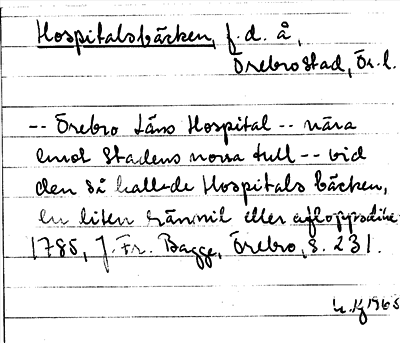 Hospitalsbäcken, f.d. å,
Örebro stad, Ör.l.
-- Örebro Läns Hospital -- nära
emot Stadens norra tull -- vid
den så kallade Hospitals bäcken,
en liten rännil eller afloppsdike
1785, J. Fr. Bagge, Örebro, s. 231.
1965